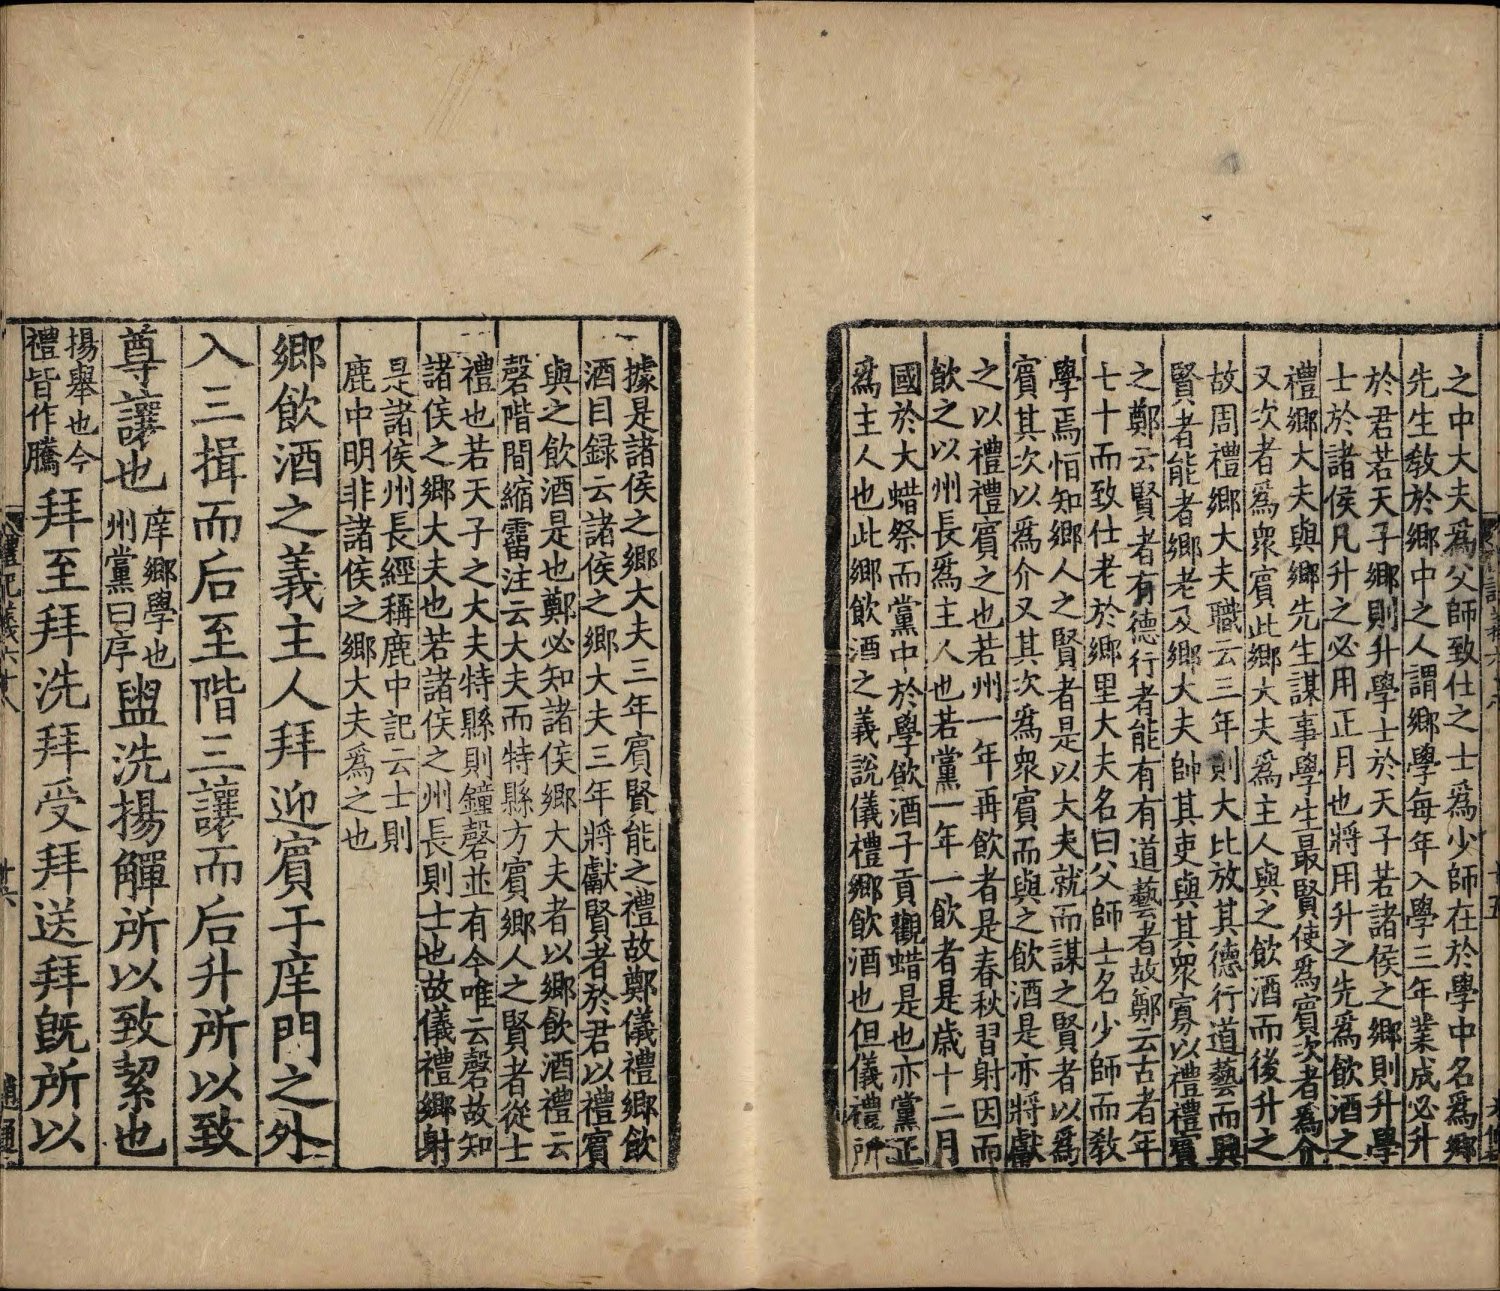 之中大夫爲父師致仕之士爲少師在於學中名爲鄉
先生敎於鄉中之人謂鄉學每年入學三年業成必升
於君若天子鄉則升學士於天子若諸侯之鄉則升學
士於諸侯凡升之必用正月也將用升之先爲飲酒之
禮鄉大夫與鄉先生謀事學生最賢使爲賓次者爲介
又次者爲衆賓此鄉大夫爲主人與之飲酒而後升之
故周禮鄉大夫職云三年則大比攷其德行道藝而興
賢者能者鄉老及鄉大夫帥其吏與其衆寡以禮禮賓
之鄭云賢者有德行者能有有道藝者故鄭云古者年
七十而致仕老於鄉里大夫名曰父師士名少師而敎
學焉恒知鄉人之賢者是以大夫就而謀之賢者以爲
賓其次以爲介又其次爲衆賓而與之飲酒是亦將獻
之以禮禮賓之也若州一年再飲者是春秋習射因而
飲之以州長爲主人也若黨一年一飲者是歲十二月
國於大蜡祭而黨中於學飲酒子貢觀蜡是也亦黨正
爲主人也此鄉飲酒之義說儀禮鄉飲酒也但儀禮所
據是諸侯之鄉大夫三年賓賢能之禮故鄭儀禮鄉飲
酒目録云諸侯之鄉大夫三年將獻賢者於君以禮賓
與之飲酒是也鄭必知諸侯鄉大夫者以鄉飲酒禮云
磬階間縮霤注云大夫而特縣方賓鄉人之賢者從士
禮也若天子之大夫特縣則鐘磬並有今唯云磬故知
諸侯之鄉大夫也若諸侯之州長則士也故儀禮鄉射
是諸侯州長經稱鹿中記云士則
鹿中明非諸侯之鄉大夫爲之也
鄉飲酒之義主人拜迎賓于庠門之外
入三揖而后至階三讓而后升所以致
尊讓也庠鄉學也州黨曰序盥洗揚觶所以致絜也
揚舉也今禮皆作騰拜至拜洗拜受拜送拜旣所以